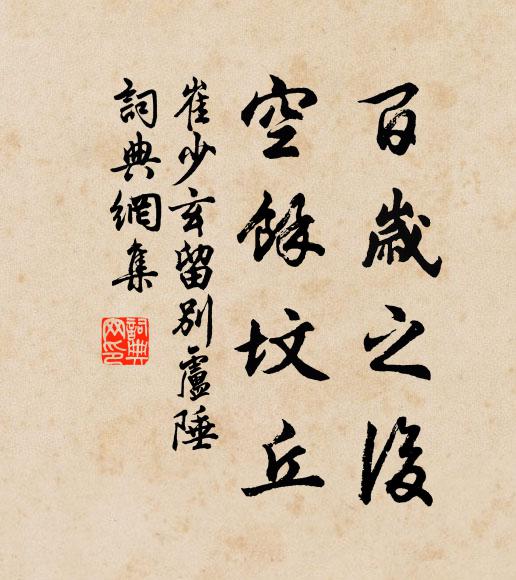 百歲之後
空餘坟丘
崔少玄留別盧陲
詞典網集
詞典網印